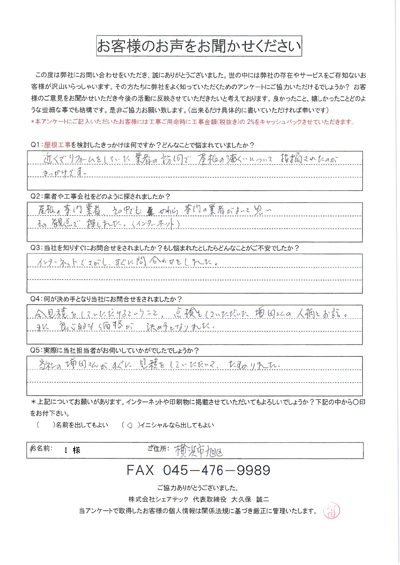 お客様のお声をお聞かせください
この度は弊社にお問い合わせをいただき、誠にありがとうございました。世の中には弊社の存在やサービスをご存知ないお
客様が沢山いらっしゃいます。その方たちに弊社をよく知っていただくためのアンケートにご協力いただけるでしょうか？お客
様のご意見をお聞かせいただき今後の活動に反映させていただきたいと考えております。良かったこと、嬉しかったことどのよ
うな些細な事でも結構です。是非ご協力お願い致します。（出来るだけ具体的に書いていただけますと幸いです）
*本アンケートにご記入いただいたお客様には工事ご用命時に工事金額（税抜き）の2%をキャッシュバックさせていただきます。
Q1：屋根工事を検討したきっかけは何ですか？どんなことで悩まれていましたか？
近くでリフォームをしていた業者の訪問で 屋根の
について 指摘されたのが
きっかけです。
Q2：業者や工事会社をどのように探されましたか？
屋根の専門業者、
専門の業者が
その観点で 探しました。（インターネット）
Q3：当社を知りすぐにお問合せをされましたか？もし悩まれたとしたらどんなことがご不安でしたか？
インターネットでさがし、すぐに問合わせをしました。
Q4：何が決め手となり当社にお問合せをされましたか？
点検をしていただいた
さんの人柄とお話。
また
価格が 決め手となりました。
Q5：実際に当社担当者がお伺いしていかがでしたでしょうか？
さんが すぐに 見積をしていただいて、
*上記についてお願いがあります。インターネットや印刷物に掲載させていただいてもよろしいでしょうか？下記の中から〇印
をお付下さい。
（　）名前を出してもよい （〇）イニシャルなら出してもよい
お名前： I 様 ご住所： 横浜市旭区
FAX 045-476-9989
ご協力ありがとうございました。
株式会社シェアテック 代表取締役 大久保 誠二
当アンケートで取得したお客様の個人情報は関係法規に基づき厳正に管理いたします。